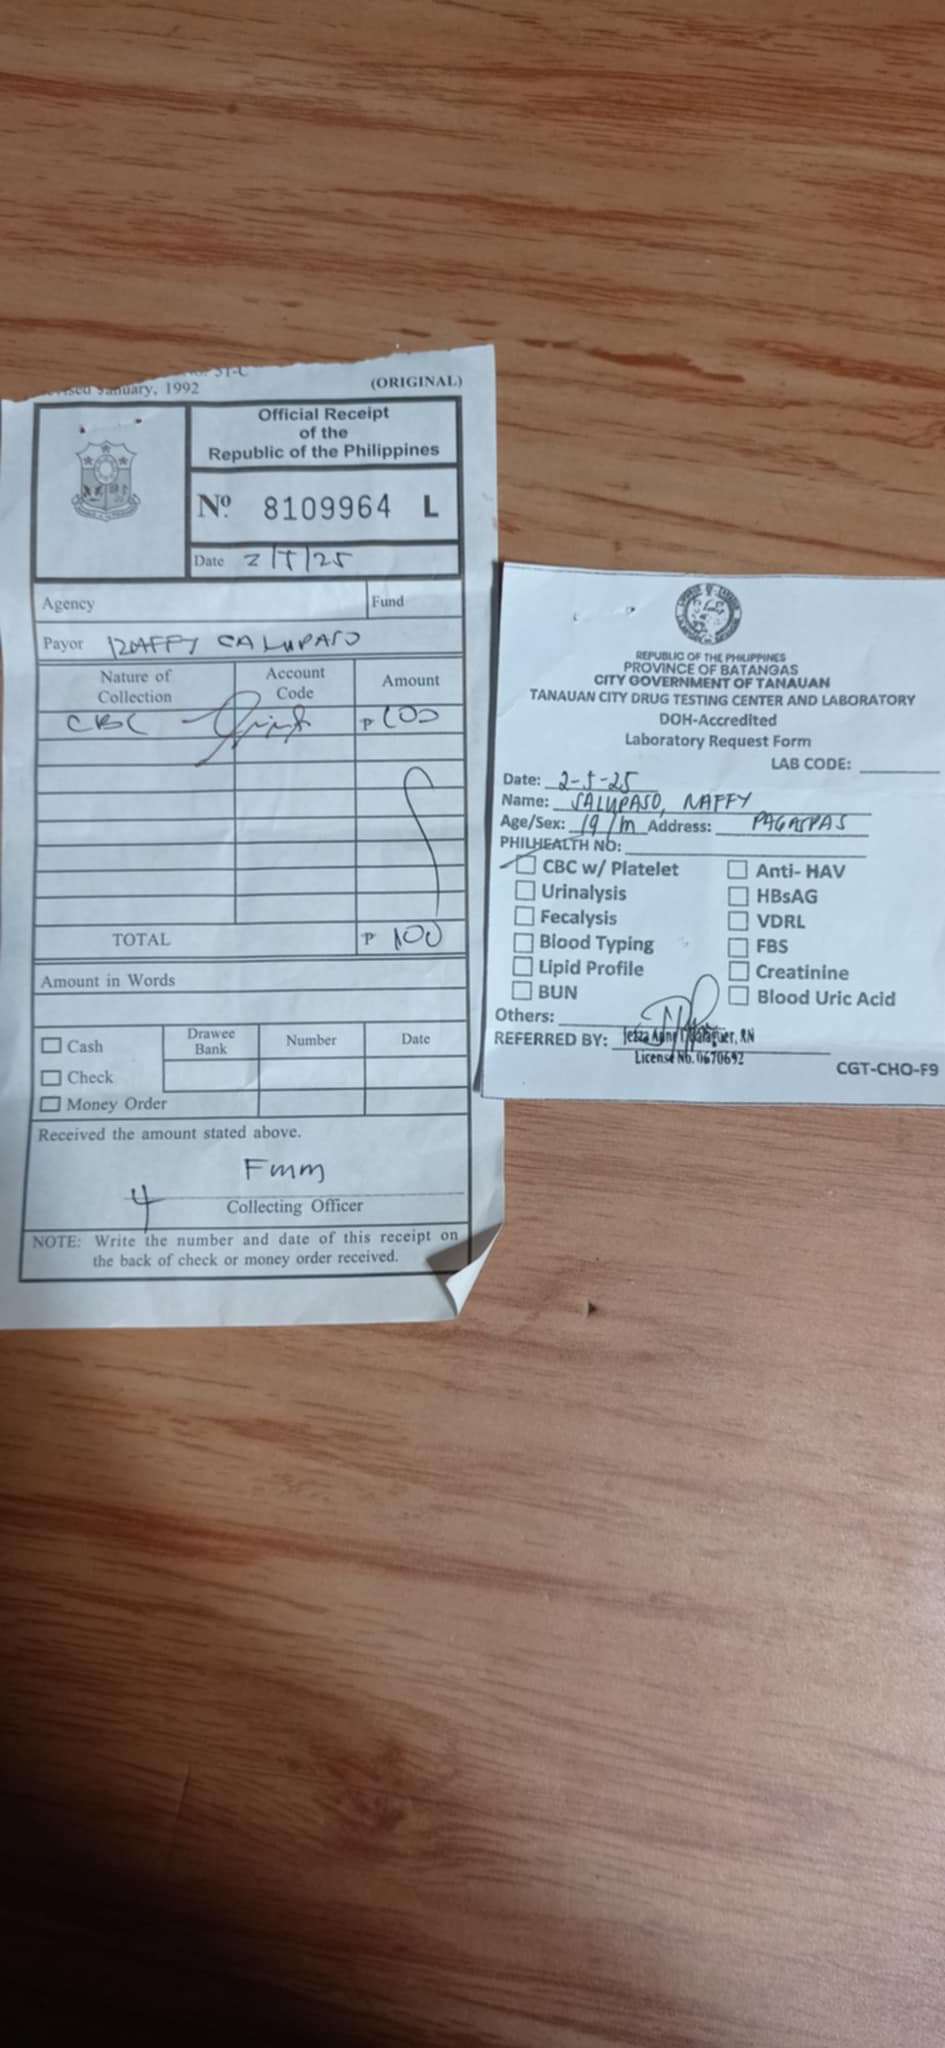 January, 1992
(ORIGINAL)
Official Receipt
of the
Republic of the Philippines
Nº 8109964 L
Date 2/5/25
Agency
Fund
Payor RAFFY SALUPASO
Nature of Collection
Account Code
Amount
CBC ₱ 100
TOTAL ₱ 100
Amount in Words
Cash
Check
Money Order
Drawee Bank
Number
Date
Received the amount stated above.
Fmm
Collecting Officer
NOTE: Write the number and date of this receipt on
the back of check or money order received.
REPUBLIC OF THE PHILIPPINES
PROVINCE OF BATANGAS
CITY GOVERNMENT OF TANAUAN
TANAUAN CITY DRUG TESTING CENTER AND LABORATORY
DOH-Accredited
Laboratory Request Form
LAB CODE:
Date: 2-5-25
Name: SALUPASO, RAFFY
Age/Sex: 19/m Address: PAGASPAS
PHILHEALTH NO:
CBC w/ Platelet
Urinalysis
Fecalysis
Blood Typing
Lipid Profile
BUN
Anti- HAV
HBsAG
VDRL
FBS
Creatinine
Blood Uric Acid
Others:
REFERRED BY: RN
License No. 0670692
CGT-CHO-F9